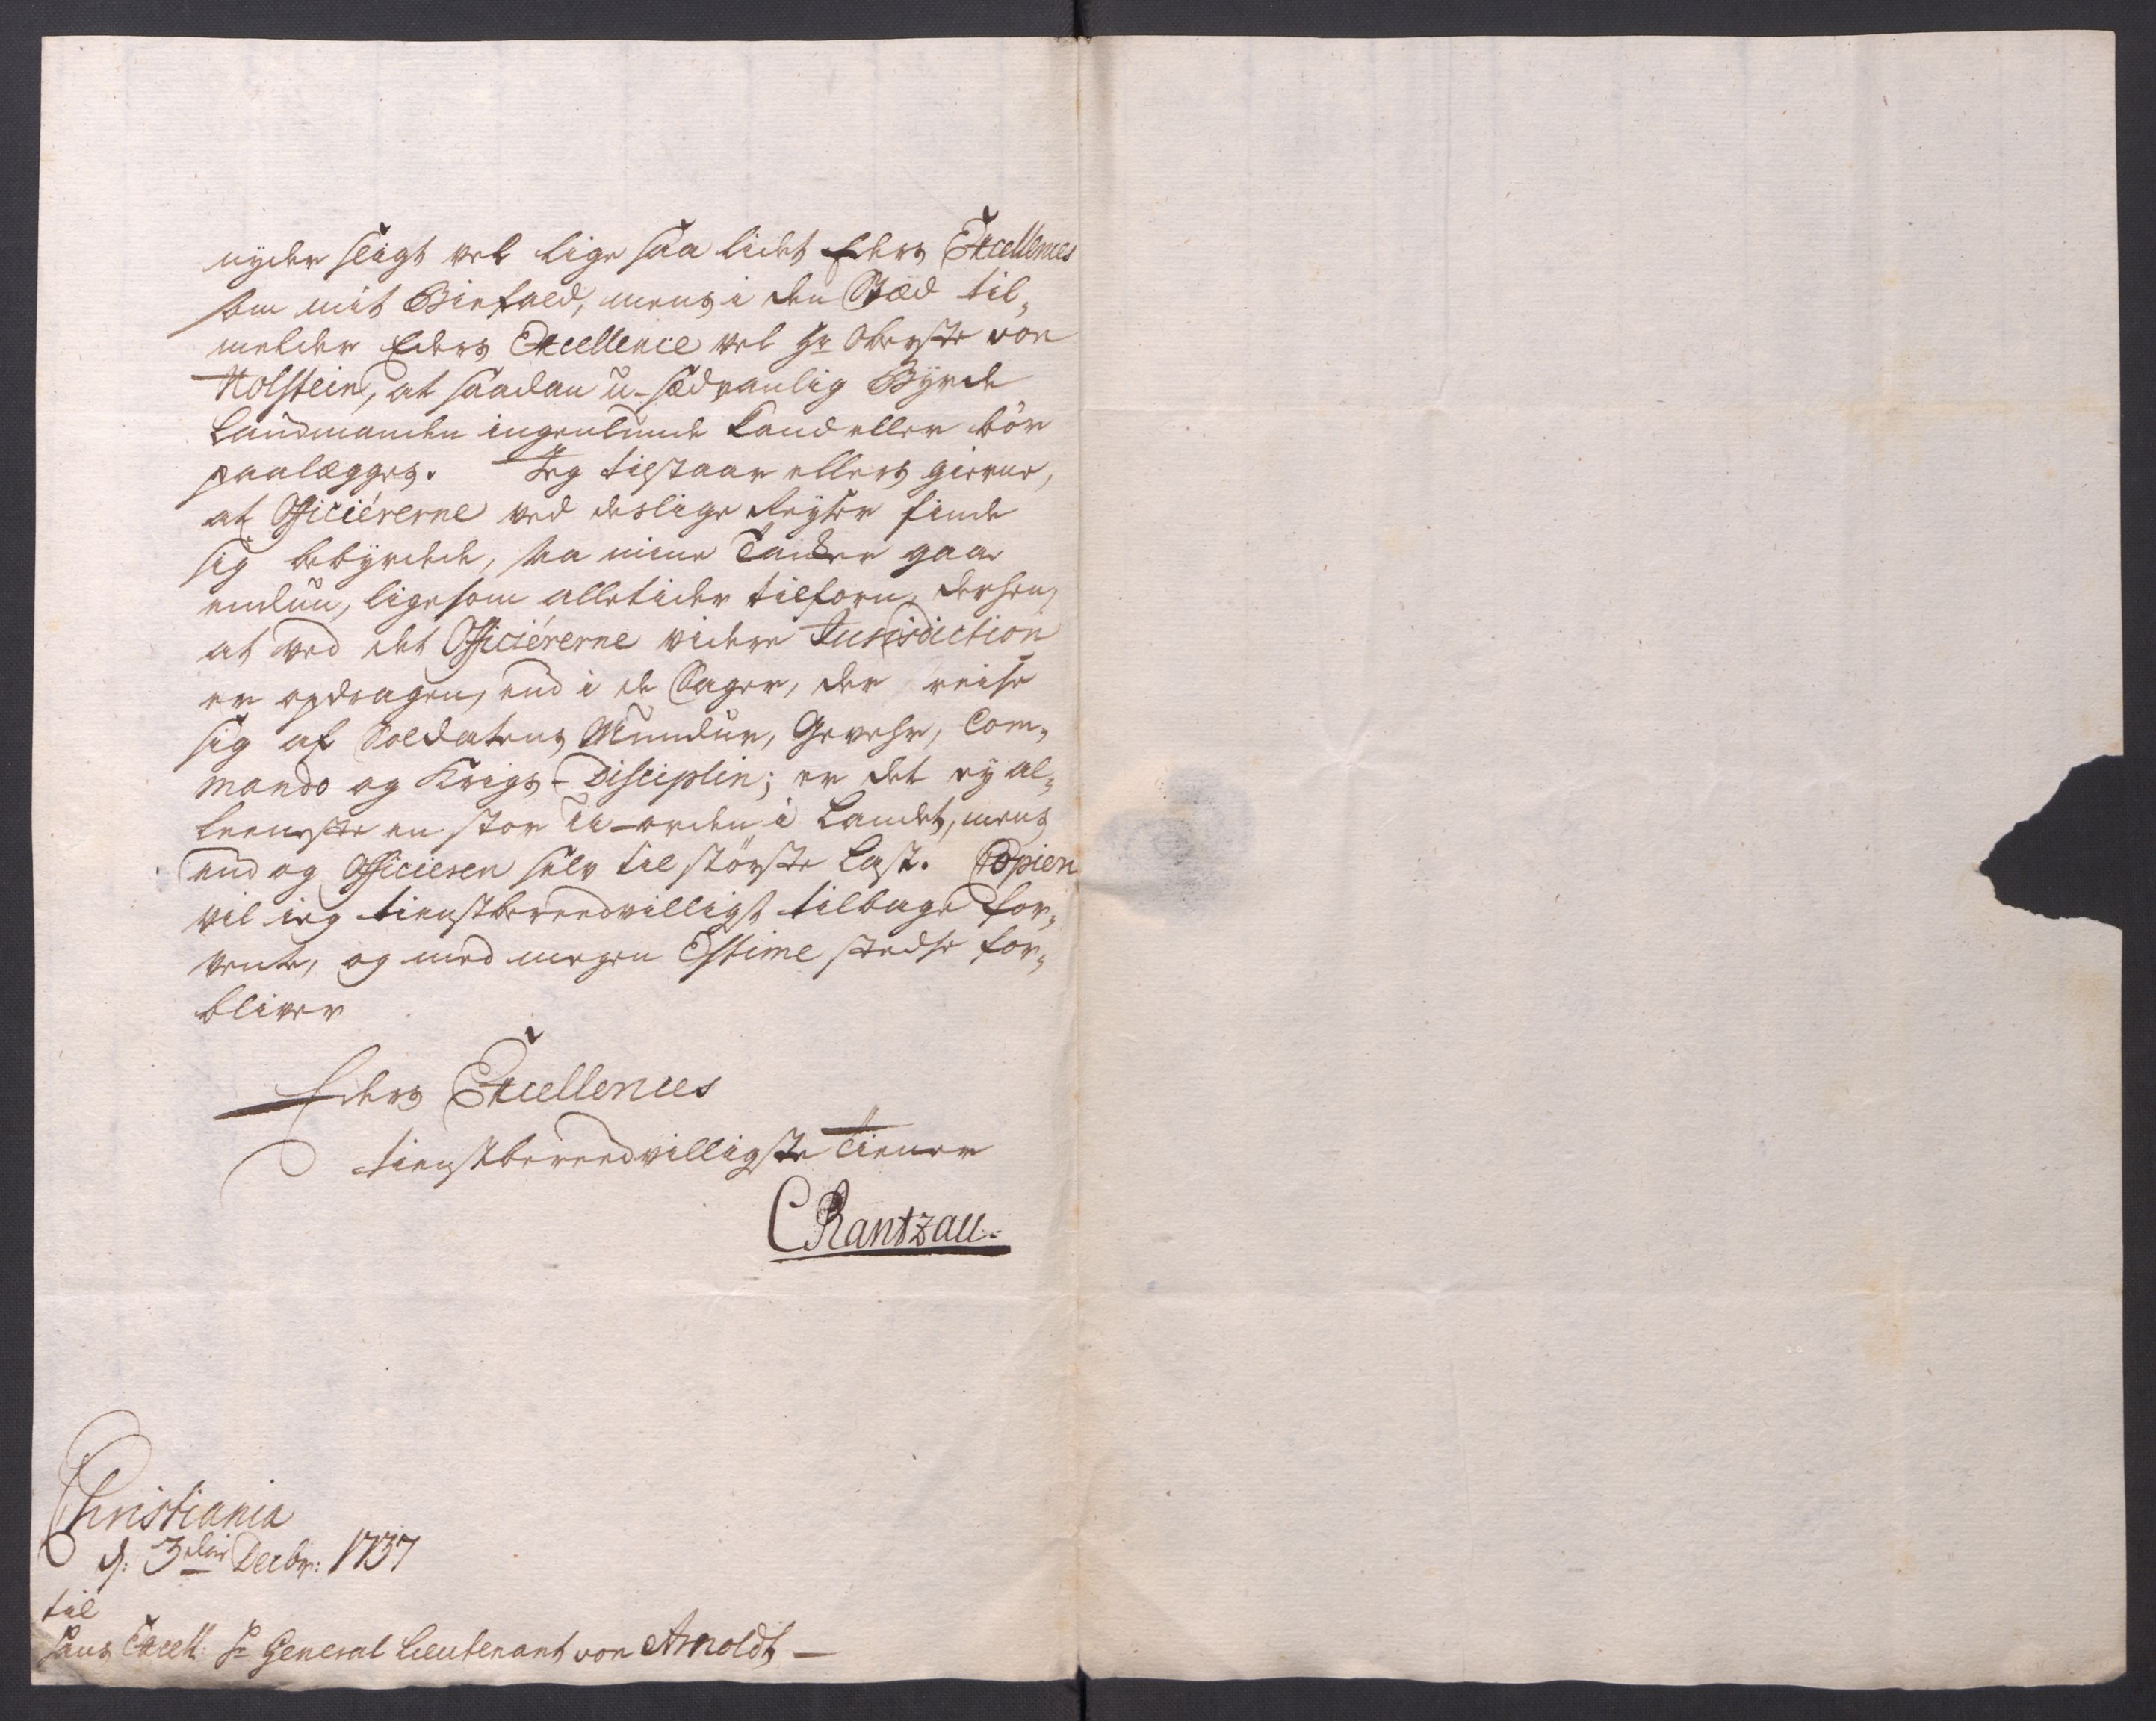 nyder sligt vel lige saa lidet Eders Excellences
som mit Biefald, mens i den Stæd til-
melder Eders Excellence vel Hr Oberste von
Holstein, at saadan u-sædvanlig Byrde
Landmanden ingenlunde kand eller bör
paalægges. Jeg tilstaar ellers gierne,
at Officiérerne ved deslige Reyser finde
sig bebyrdede, saa mine Tanker gaar
endnu, ligesom alletider tilforn, derhen,
at ved det Officiérerne videre Jurisdiction
er opdragen, end i de Sager, der reise
sig af Soldatens Mundur, Gevehr, Com-
mando og Krigs-Disciplin; er det ey al-
leeneste en stor U-orden i Landet, mens
end og Officieren selv til störste Last. Copien
vil ieg tienstbereedvilligst tilbage for-
vente, og med megen Estime stedse for-
bliver
Eders Excellences
tienstbereedvilligste Tiener
CRantzau.
Christiania
d: 3den Decbr: 1737
til
Hans Excell: Hr General Lieutenant von Arnoldt —